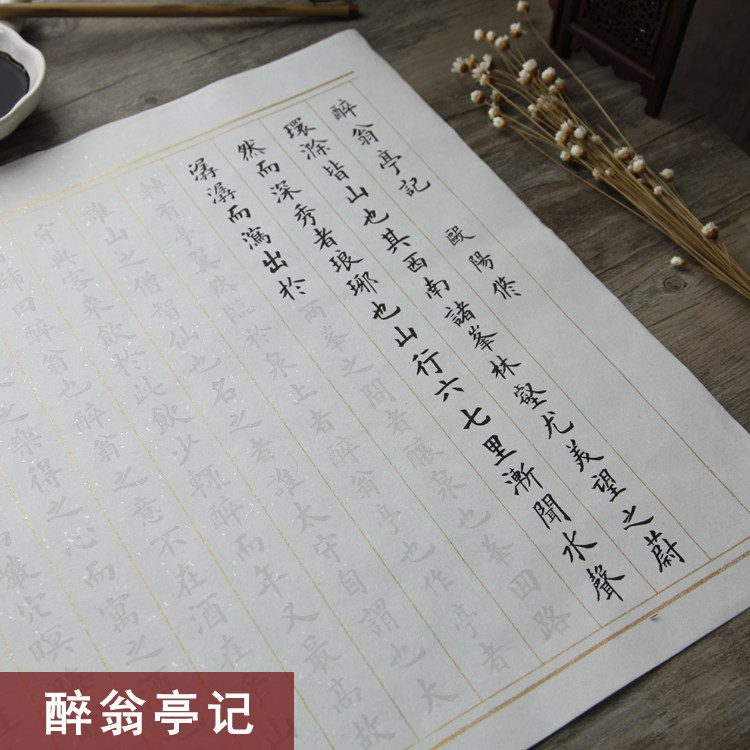 醉翁亭記 歐陽修
環滁皆山也其西南諸峯林壑尤美望之蔚
然而深秀者琅琊也山行六七里漸聞水聲
潺潺而瀉出於兩峯之間者釀泉也峯回路
有亭翼然臨於泉上者醉翁亭也作亭者
誰山之僧智仙也名之者誰太守自謂也太
守與客來飲於此飲少輒醉而年又最高故
曰醉翁也醉翁之意不在酒在
之樂得之心而寓之
巖穴暝
醉翁亭记